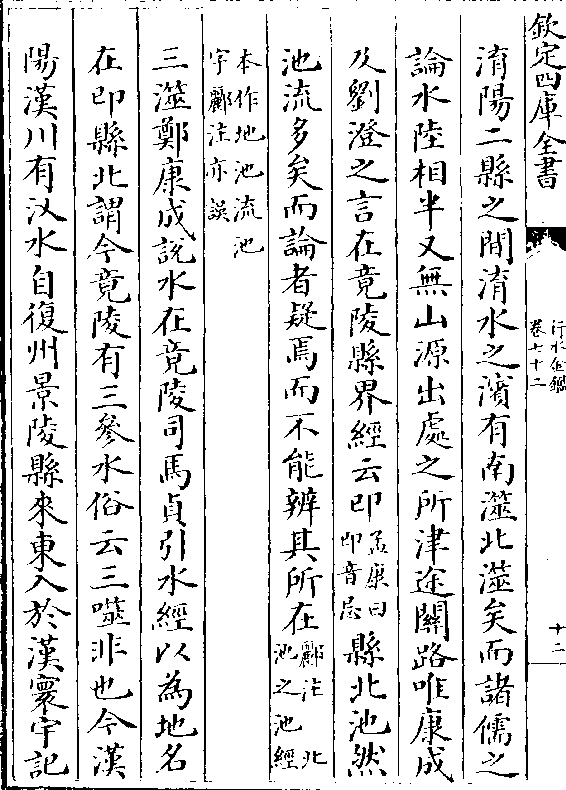 欽定四庫全書
行水金鑑
卷七十二
十二
淯陽二縣之間淯水之濱有南澨北澨矣而諸儒之
論水陸相半又無山源出處之所津途關路唯康成
及劉澄之言在竟陵縣界經云卭孟康曰卭音忌縣北池然
池流多矣而論者疑焉而不能辨其所在酈注北池之池經
本作地池流池字酈注亦誤
三澨鄭康成說水在竟陵司馬貞引水經以為地名
在卭縣北謂今竟陵有三參水俗云三噬非也今漢
陽漢川有汊水自復州景陵縣來東入於漢寰宇記